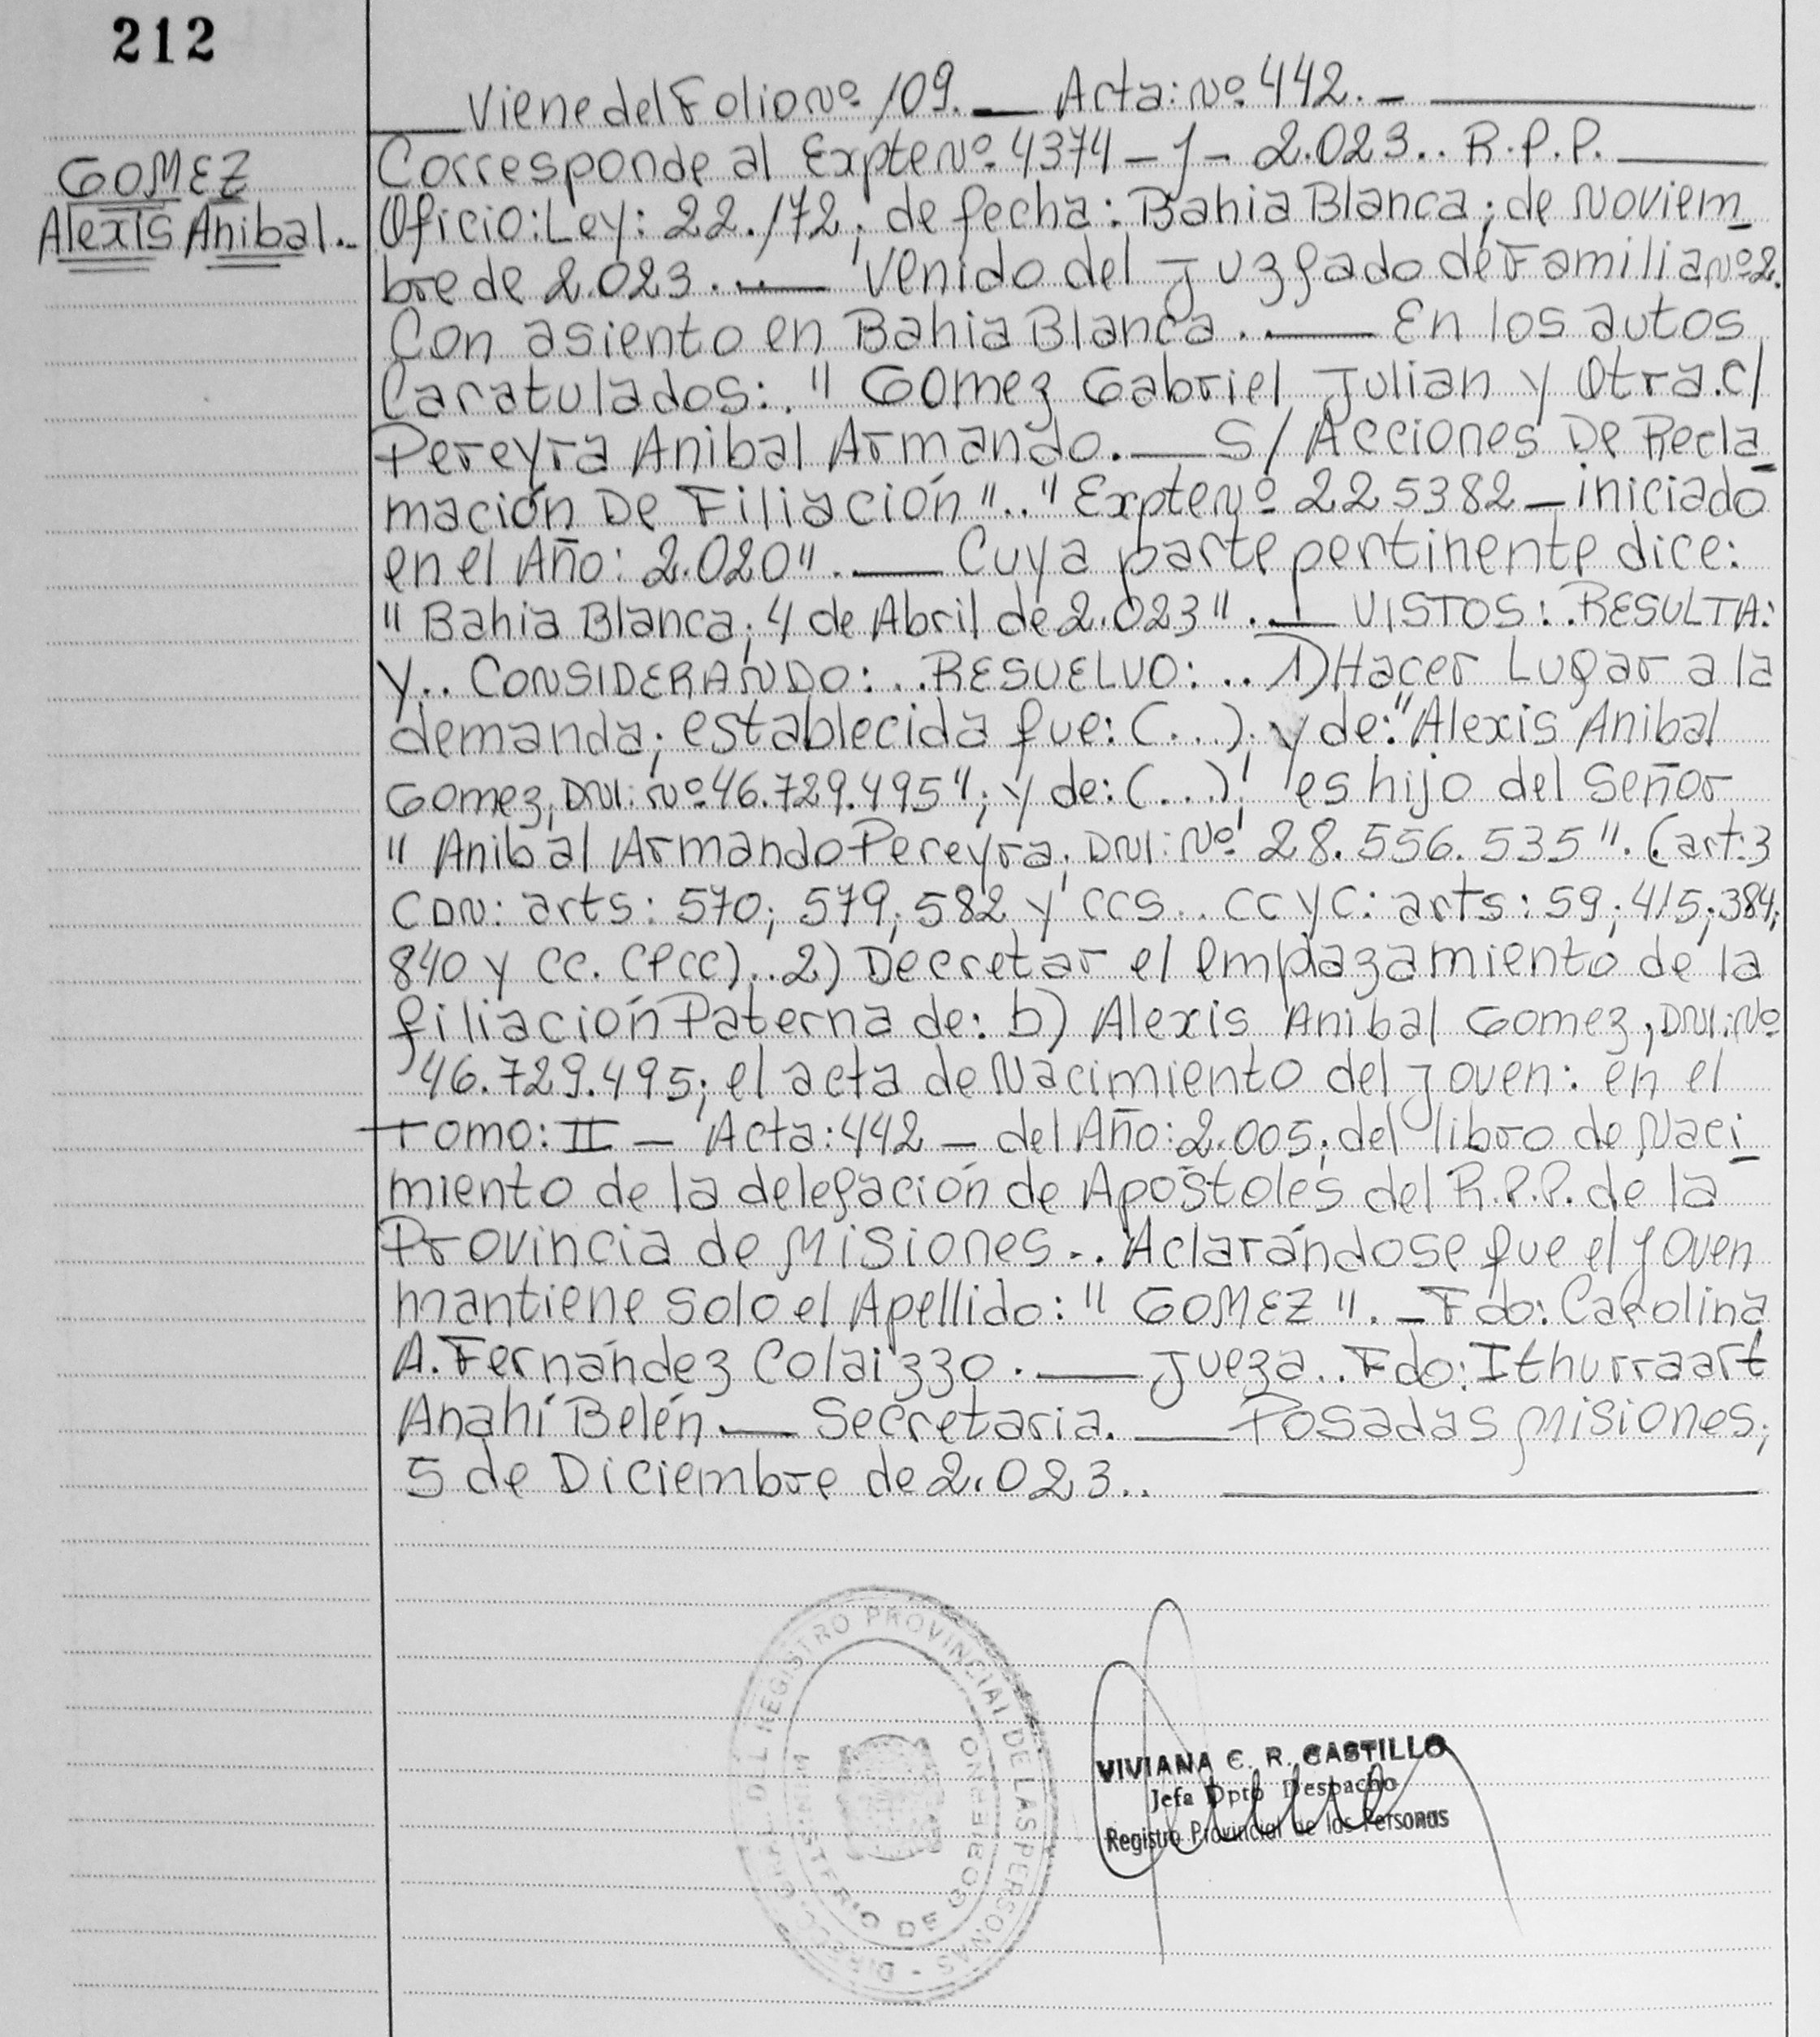 212
GOMEZ
Alexis Anibal..
Viene del Folio Nº 109. — Acta: Nº 442. —
Corresponde al Expte Nº 4374 – J – 2.023.. R.P.P.
Oficio: Ley: 22.172; de fecha: Bahia Blanca; de Noviem
bre de 2.023. — Venido del Juzgado de Familia Nº 2.
Con asiento en Bahia Blanca. — En los autos
Caratulados: " Gomez Gabriel Julian y Otra. C/
Pereyra Anibal Armando. — S/ Acciones De Recla
mación De Filiación ".. " Expte Nº 225382 – iniciado
en el Año: 2.020 ". — Cuya parte pertinente dice:
" Bahia Blanca; 4 de Abril de 2.023 ". — VISTOS: . RESULTA:
Y.. CONSIDERANDO: .. RESUELVO: .. 1) Hacer Lugar a la
demanda; establecida que: (...); y de: " Alexis Anibal
Gomez, DNI: Nº 46.729.495 "; y de: (...); es hijo del Señor
" Anibal Armando Pereyra, DNI: Nº 28.556.535 ". (art: 3
CDN: arts: 570; 579; 582 y ccs.. CC y C: arts: 59; 415; 384;
840 y cc. CPCC).. 2) Decretar el emplazamiento de la
filiación Paterna de: b) Alexis Anibal Gomez, DNI: Nº
46.729.495; el acta de Nacimiento del joven: en el
Tomo: II – Acta: 442 – del Año: 2.005; del libro de Naci
miento de la delegación de Apóstoles del R.P.P. de la
Provincia de Misiones.. Aclarándose que el joven
mantiene solo el Apellido: " GOMEZ ". – Fdo: Carolina
A. Fernández Colaizzo. — Jueza.. Fdo: Ithurraart
Anahí Belén. — Secretaria. — Posadas Misiones;
5 de Diciembre de 2.023..
DIRECC. GRAL. DEL REGISTRO PROVINCIAL DE LAS PERSONAS -
MINISTERIO DE GOBIERNO
VIVIANA C. R. CASTILLO
Jefa Dpto Despacho
Registro Provincial de las Personas